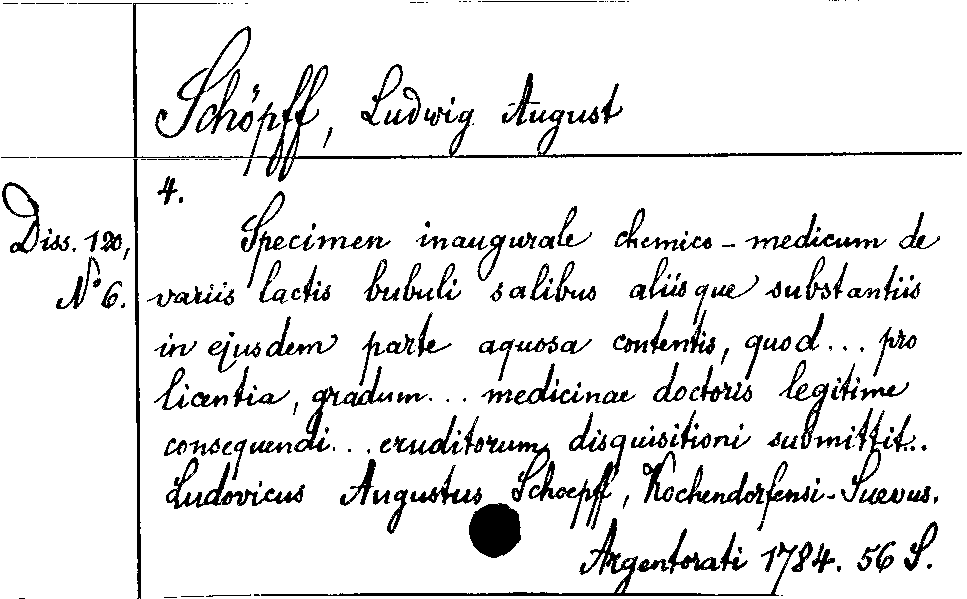 Schöpff, Ludwig August
4.
Diss. 120,
No 6.
Specimen inaugurale chemico-medicum de
variis lactis bubuli salibus aliisque substantiis
in ejusdem parte aquosa contentis, quod... pro
licentia, gradum... medicinae doctoris legitime
consequendi... eruditorum disquisitioni submittit...
Ludovicus Augustus Schoepff, Kochendorfensi-Suevus.
Argentorati 1784. 56 S.